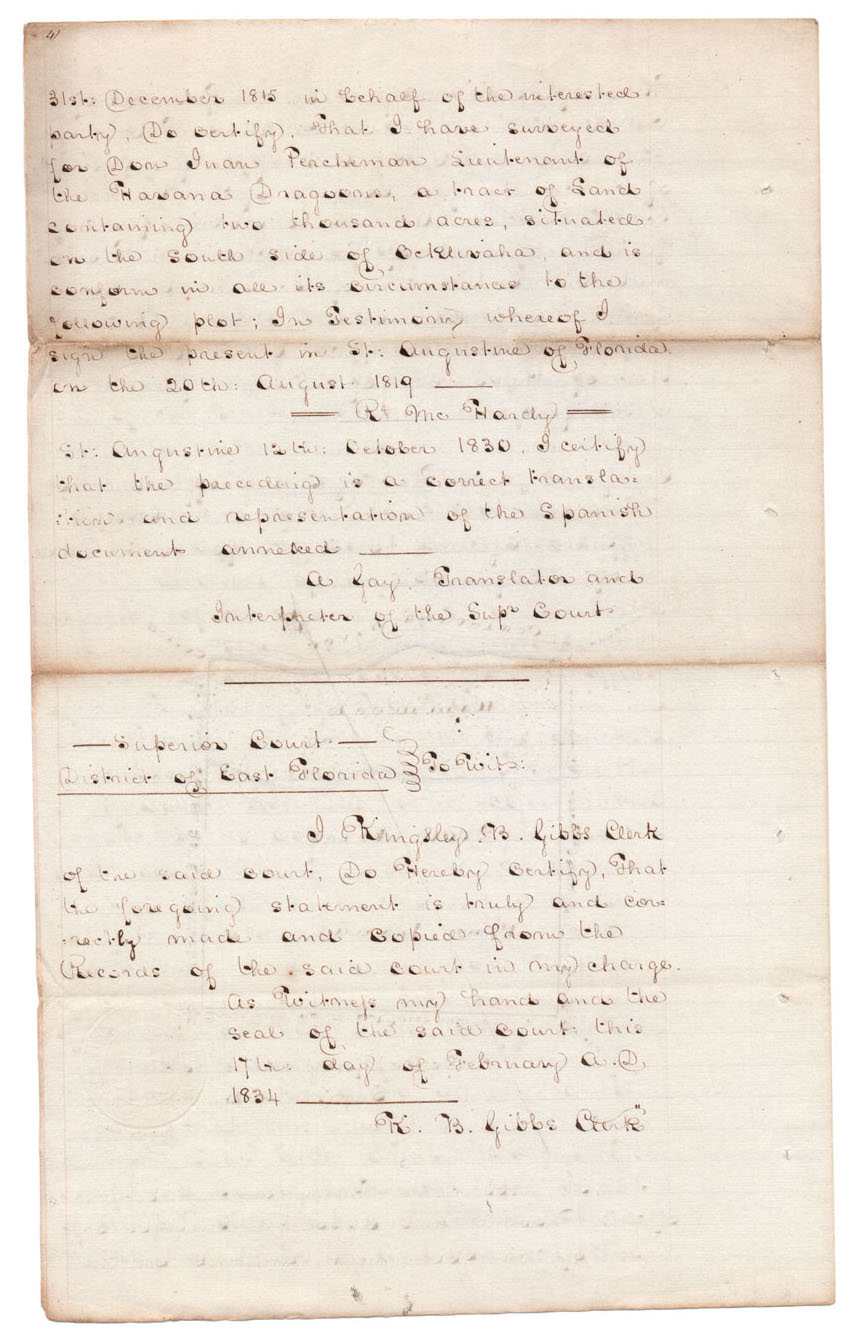 4
31st: December 1815 in behalf of the interested
party, Do certify, That I have surveyed
for Don Juan Percheman Lieutenant of
the Havana Dragoons, a tract of Land
containing two thousand acres, situated
on the South side of Ocklivaha, and is
conform in all its circumstances to the
following plot; In Testimony whereof I
sign the present in St: Augustine of Florida
on the 20th: August 1819 ——
== Rt Mc Hardy ==
St: Augustine 12th: October 1830, I certify
that the preceding is a correct transla=
=tion and representation of the Spanish
document annexed ——
A Gay, Translator and
Interpreter of the Supr Court
—Superior Court—
District of East Florida } To Wit:
I Kingsley B. Gibbs Clerk
of the said court, Do Hereby Certify, That
the foregoing statement is truly and cor=
=rectly made and copied from the
Records of the said court in my charge.
As Witness my hand and the
seal of the said court this
17th: day of February A.D,
1834 ——
K. B. Gibbs Clerk"